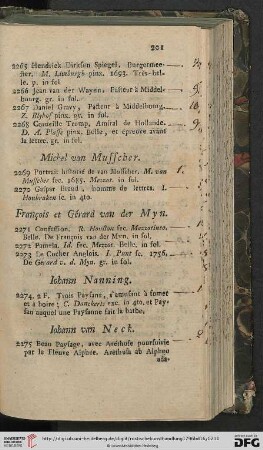 201
2265 Hendrick Dirksen Spiegel. Burgemee-
ster. M. Limburgh pinx. 1693. Très-bel-
le. p. in fol.
2266 Jean van der Wayen. Pasteur à Middel-
bourg. gr. in fol.
2267 Daniel Gravy, Pasteur à Middelbourg.
Z. Blyhof pinx. gr. in fol.
2268 Corneille Tromp, Amiral de Hollande.
D. A. Plaese pinx. Belle, et epreuve avant
la lettre. gr. in fol.
Michel van Musscher.
2269 Portrait historié de van Musscher. M. van
Musscher fec. 1685. Mezzot. in fol.
2270 Gaspar Brand, homme de lettres. I.
Houbraken sc. in 4to.
François et Gérard van der Myn.
2271 Confession. R. Houston fec. Mezzotinto.
Belle. De François van der Myn. in fol.
2272 Pamela. Id. fec. Mezzot. Belle. in fol.
2273 Le Cocher Anglois. I. Punt fc. 1756.
De Gerard v. d. Myn. gr. in fol.
Iohann Nanning.
2274. 2 F. Trois Paysans, s'amusant à fumer
et à boire; C. Danckerts exc. in 4to, et Pay-
san auquel une Paysanne fait la barbe.
Iohann van Neck.
2275 Beau Paysage, avec Aréthuse poursuivie
par le Fleuve Alphée. Arethusa ab Alpheo
http://digi.ub.uni-heidelberg.de/diglit/
Universitätsbibliothek Heidelberg
gefördert durch die
DFG